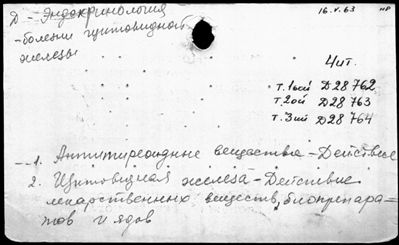 Д - Эндокринология 16.V.63 нр
- болезни щитовидной
железы
4 ит.
т. 1ый Д28 762
т. 2ой Д28 763
т. 3ий Д28 764
-- 1. Антитиреоидные вещества - Действие
2. Щитовидная железа - Действие
лекарственных веществ, биопрепара-
тов и ядов